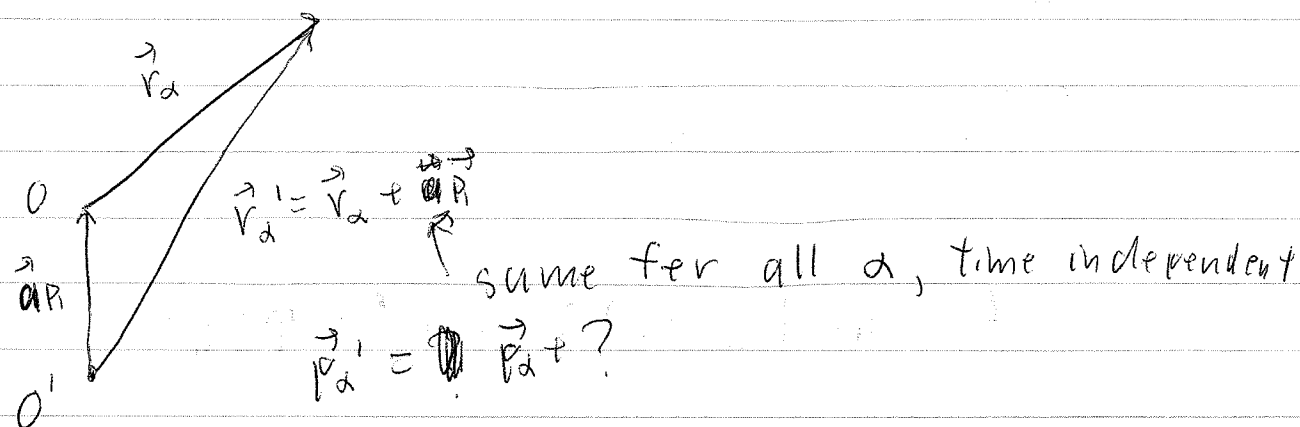 r⃗α
O
r⃗α' = r⃗α +
same for all α, time independent
p⃗α' = p⃗α + ?
O'